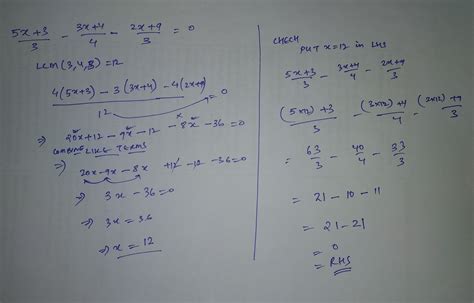 5x+3/3 - 3x+4/4 - 2x+9/3 = 0
LCM (3,4,3) = 12
4(5x+3) - 3(3x+4) - 4(2x+9) / 12 = 0
⇒ 20x+12 - 9x - 12 - 8x - 36 = 0
COMBINING LIKE TERMS
⇒ 20x - 9x - 8x + 12 - 12 - 36 = 0
⇒ 3x - 36 = 0
⇒ 3x = 36
⇒ x = 12
CHECK
PUT x=12 in LHS
5x+3/3 - 3x+4/4 - 2x+9/3
(5x12)+3/3 - (3x12)+4/4 - (2x12)+9/3
= 63/3 - 40/4 - 33/3
= 21 - 10 - 11
= 21 - 21
= 0
= RHS